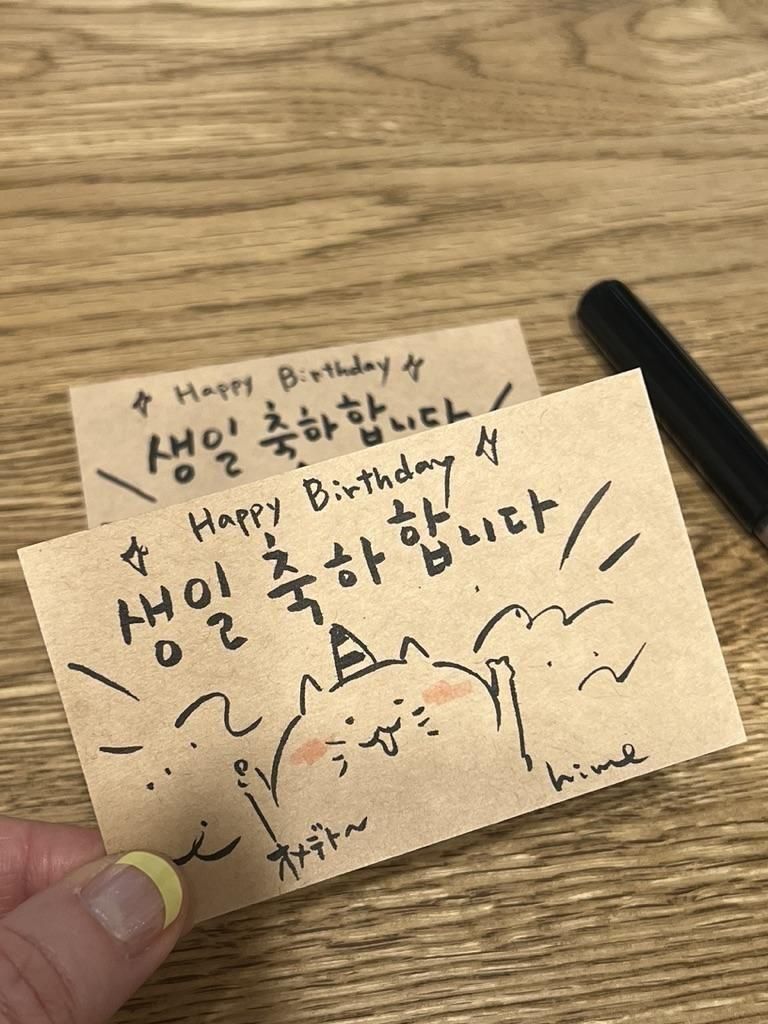 Happy Birthday
생일 축하합니다
Happy Birthday
생일 축하 합니다
オメデト〜
hime